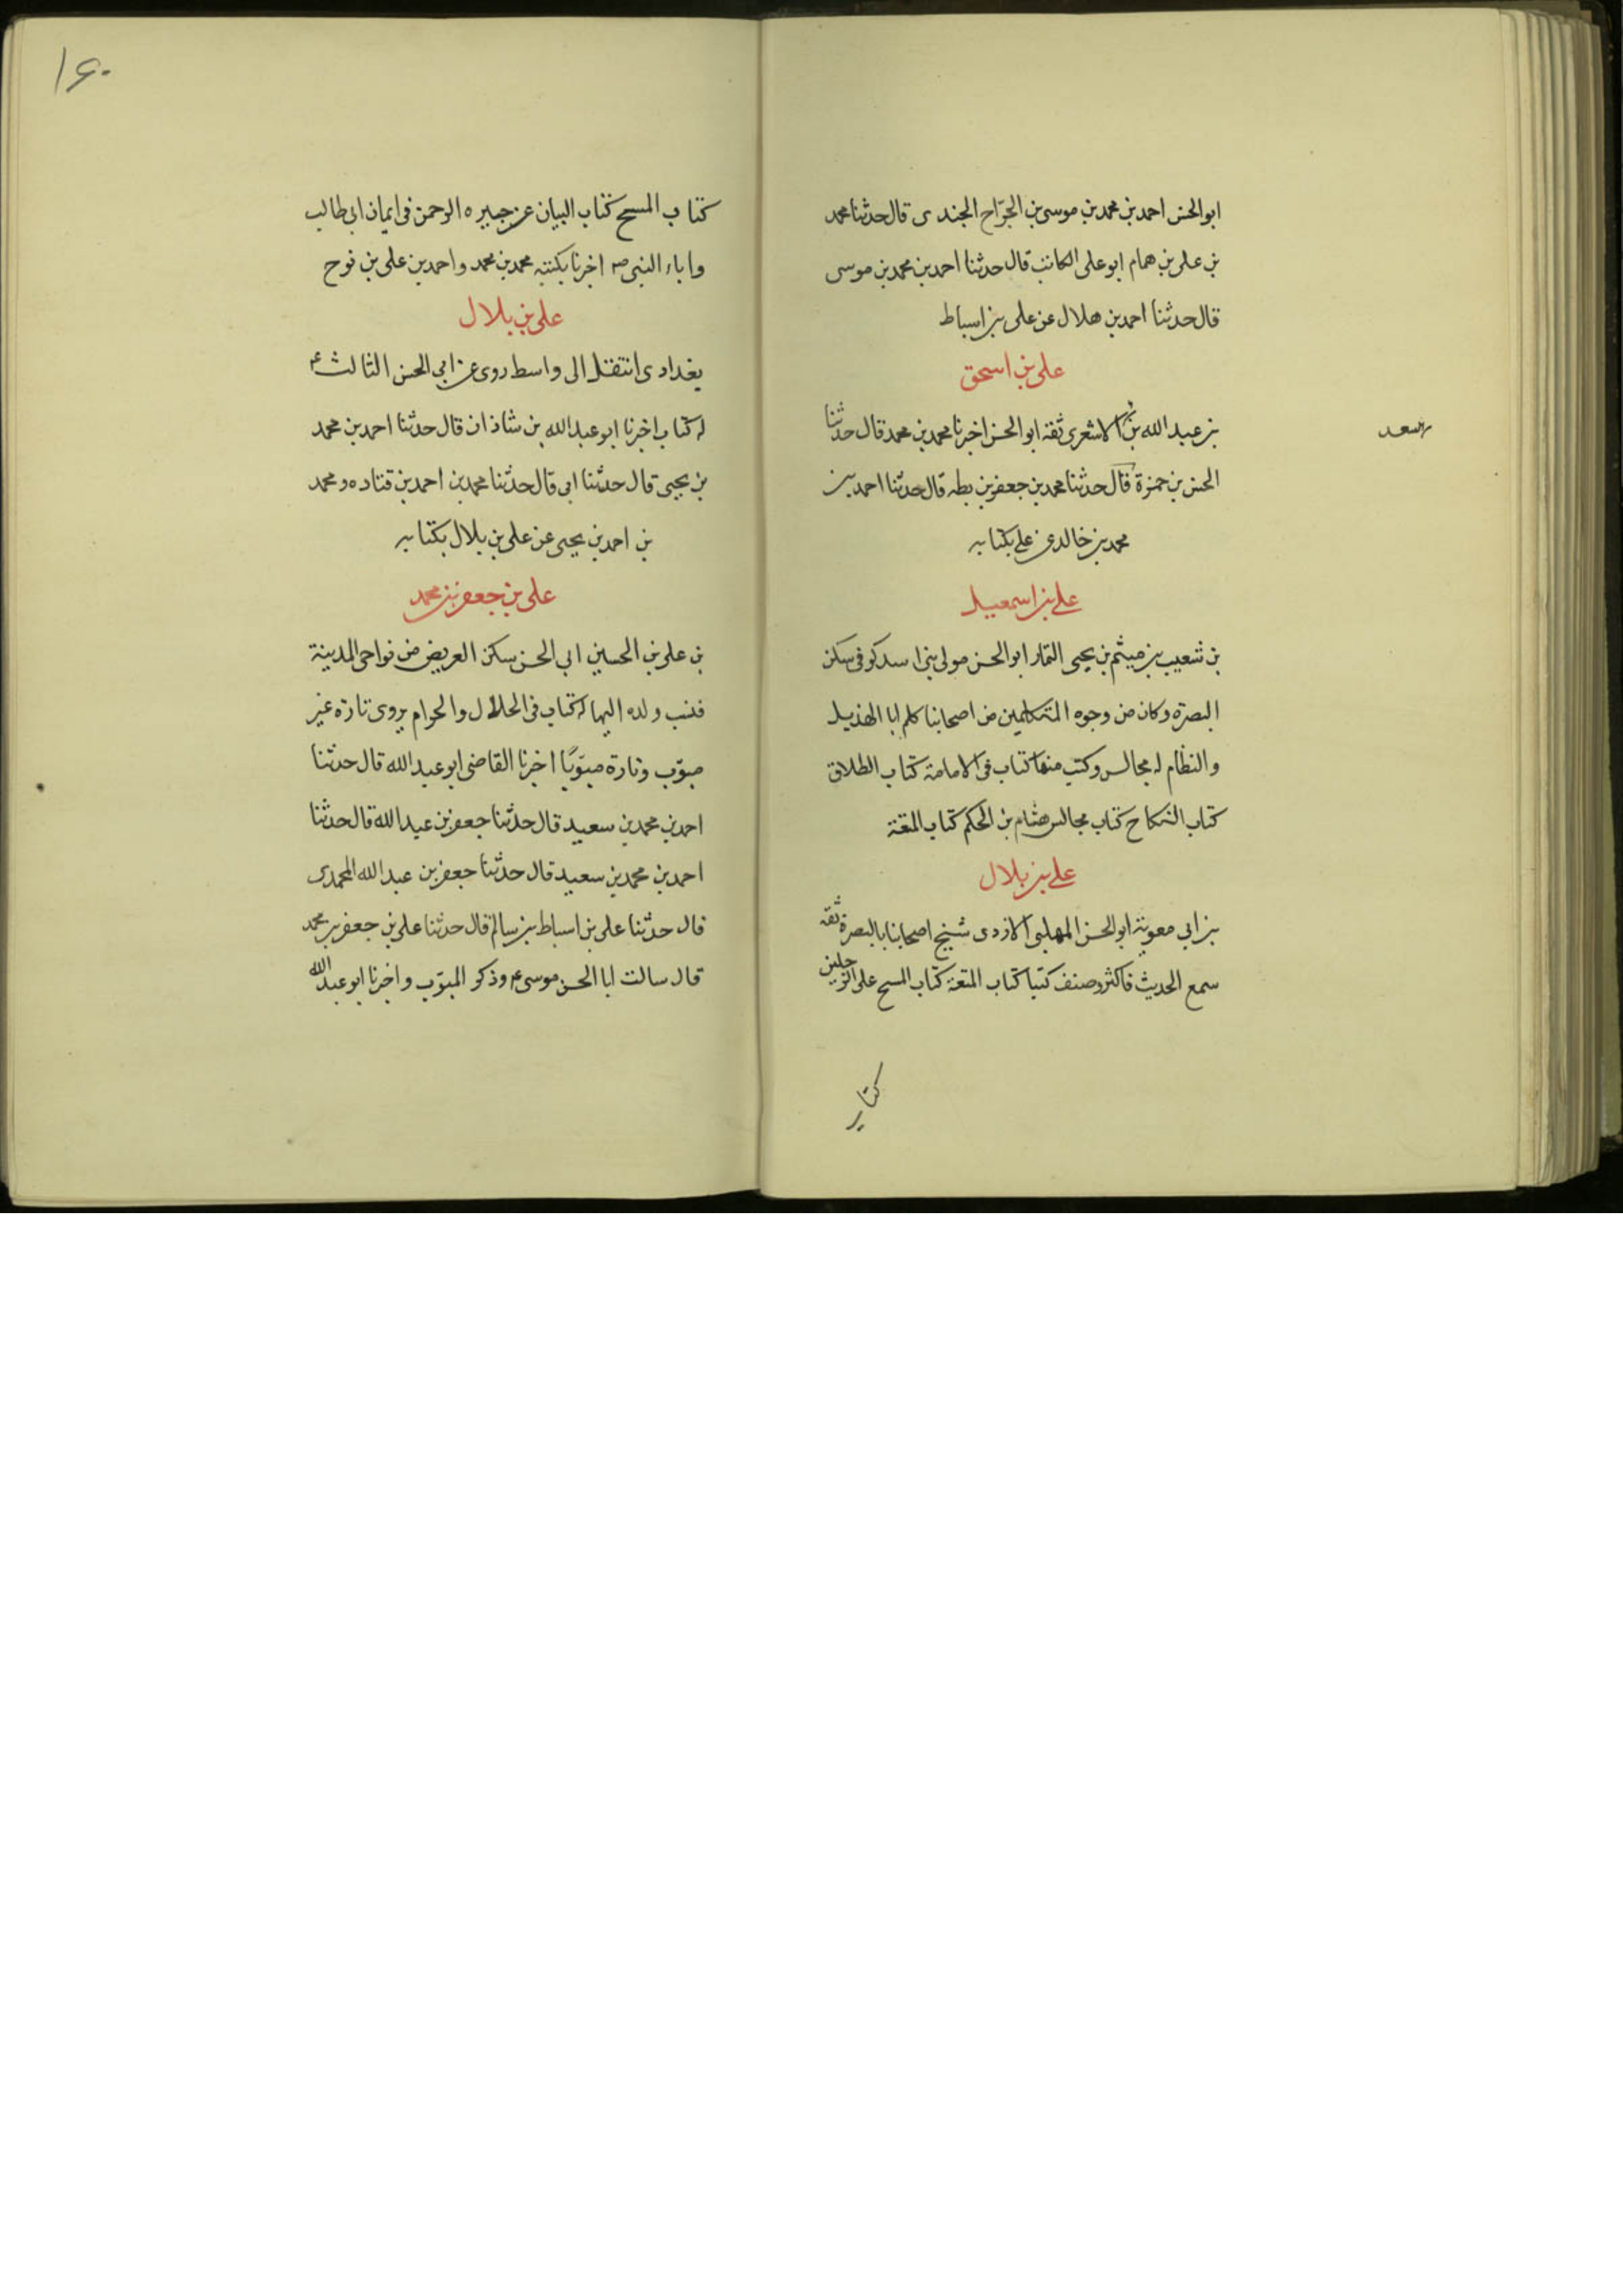 ابوالحسن احمد بن محمد بن موسی بن الجرّاح الجندی قال حدثنا محمد
بن علی بن همام ابو علی الکاتب قال حدثنا احمد بن محمد بن موسی
قال حدثنا احمد بن هلال عن علی بن اسباط
علی بن اسحق
بن عبد الله بن الاشعری ثقه ابو الحسن اخبرنا محمد بن محمد قال حدثنا
سعد
الحسن بن حمزة قال حدثنا محمد بن جعفر بن بطه قال حدثنا احمد بن
محمد بن خالد عن علی بکتابه
علی بن اسمعیل
بن شعیب بن میثم بن یحیی التمار ابو الحسن مولی بنی اسد کوفی سکن
البصرة و کان من وجوه المتکلمین من اصحابنا کلم ابا الهذیل
والنظّام له مجالس و کتب منها کتاب فی الامامة کتاب الطلاق
کتاب النکاح کتاب مجالس هشام بن الحکم کتاب المتعة
علی بن بلال
بن ابی معویة ابو الحسن المهلبی الازدی شیخ اصحابنا بالبصرة ثقه
سمع الحدیث فاکثر و صنف کتبا کتاب المتعة کتاب المسح علی الرجلین
کتاب
۱۶۰
کتاب المسح کتاب البیان عن خیره الرحمن فی ایمان ابی طالب
و اباء النبی ص اخبرنا بکتبه محمد بن محمد و احمد بن علی بن نوح
علی بن بلال
بغدادی انتقل الی واسط روی عن ابی الحسن الثالث ع
له کتاب اخبرنا ابو عبد الله بن شاذان قال حدثنا احمد بن محمد
بن یحیی قال حدثنا ابی قال حدثنا محمد بن احمد بن قتاده و محمد
بن احمد بن یحیی عن علی بن بلال بکتابه
علی بن جعفر بن محمد
بن علی بن الحسین ابی الحسن سکن العریض من نواحی المدینة
فنسب ولده الیها له کتاب فی الحلال والحرام یروی تارة غیر
مبوّب و تارة مبوّبًا اخبرنا القاضی ابو عبد الله قال حدثنا
احمد بن محمد بن سعید قال حدثنا جعفر بن عبد الله قال حدثنا
احمد بن محمد بن سعید قال حدثنا جعفر بن عبد الله المحمدی
قال حدثنا علی بن اسباط بن سالم قال حدثنا علی بن جعفر بن محمد
قال سالت ابا الحسن موسی ع و ذکر المبوّب و اخبرنا ابو عبد الله